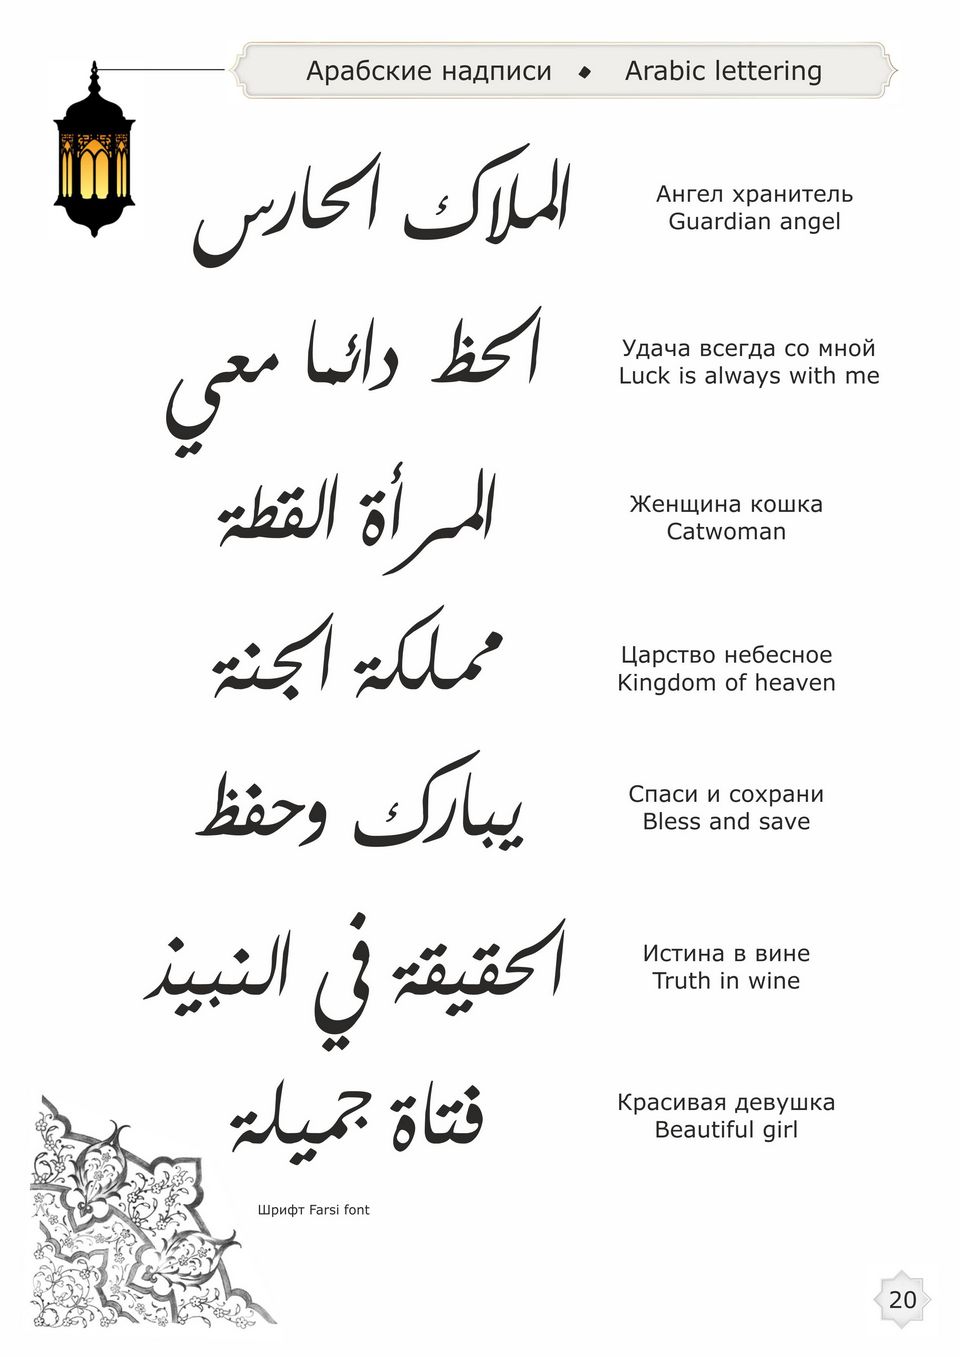 Арабские надписи ◆ Arabic lettering
الملاك الحارس
Ангел хранитель
Guardian angel
الحظ دائما معي
Удача всегда со мной
Luck is always with me
المرأة القطة
Женщина кошка
Catwoman
مملكة الجنة
Царство небесное
Kingdom of heaven
يبارك وحفظ
Спаси и сохрани
Bless and save
الحقيقة في النبيذ
Истина в вине
Truth in wine
فتاة جميلة
Красивая девушка
Beautiful girl
Шрифт Farsi font
20